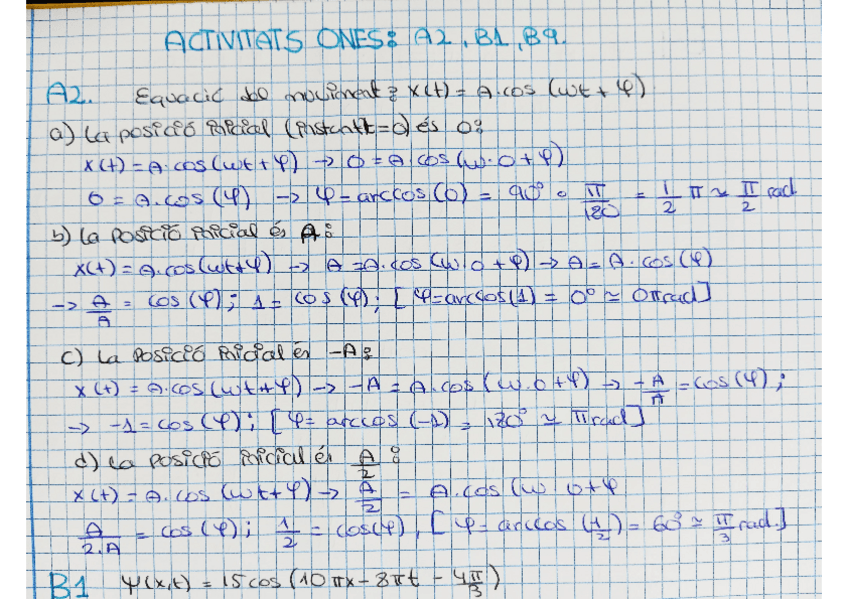 ACTIVITATS ONES: A2, B1, B9.
A2. Equació del moviment: x(t) = A·cos (ωt + φ)
a) La posició inicial (instant t=0) és 0:
x(t) = A·cos (ωt + φ) → 0 = A·cos (ω·0 + φ)
0 = A·cos (φ) → φ = arccos (0) = 90° · π/180 = 1/2 π ≃ π/2 rad
b) La posició inicial és A:
x(t) = A·cos (ωt+φ) → A = A·cos (ω·0 + φ) → A = A·cos (φ)
→ A/A = cos (φ); 1 = cos (φ); [φ=arccos(1) = 0° ≃ 0πrad]
c) La posició inicial és -A:
x(t) = A·cos (ωt+φ) → -A = A·cos (ω·0+φ) → -A/A = cos (φ);
→ -1 = cos (φ); [φ= arccos (-1) = 180° ≃ πrad]
d) La posició inicial és A/2:
x(t) = A·cos (ωt+φ) → A/2 = A·cos (ω·0+φ
A/2·A = cos (φ); 1/2 = cos(φ), [φ= arccos (1/2) = 60° ≃ π/3 rad.]
B1 Ψ(x,t) = 15 cos (10πx - 8πt - 4π/3)